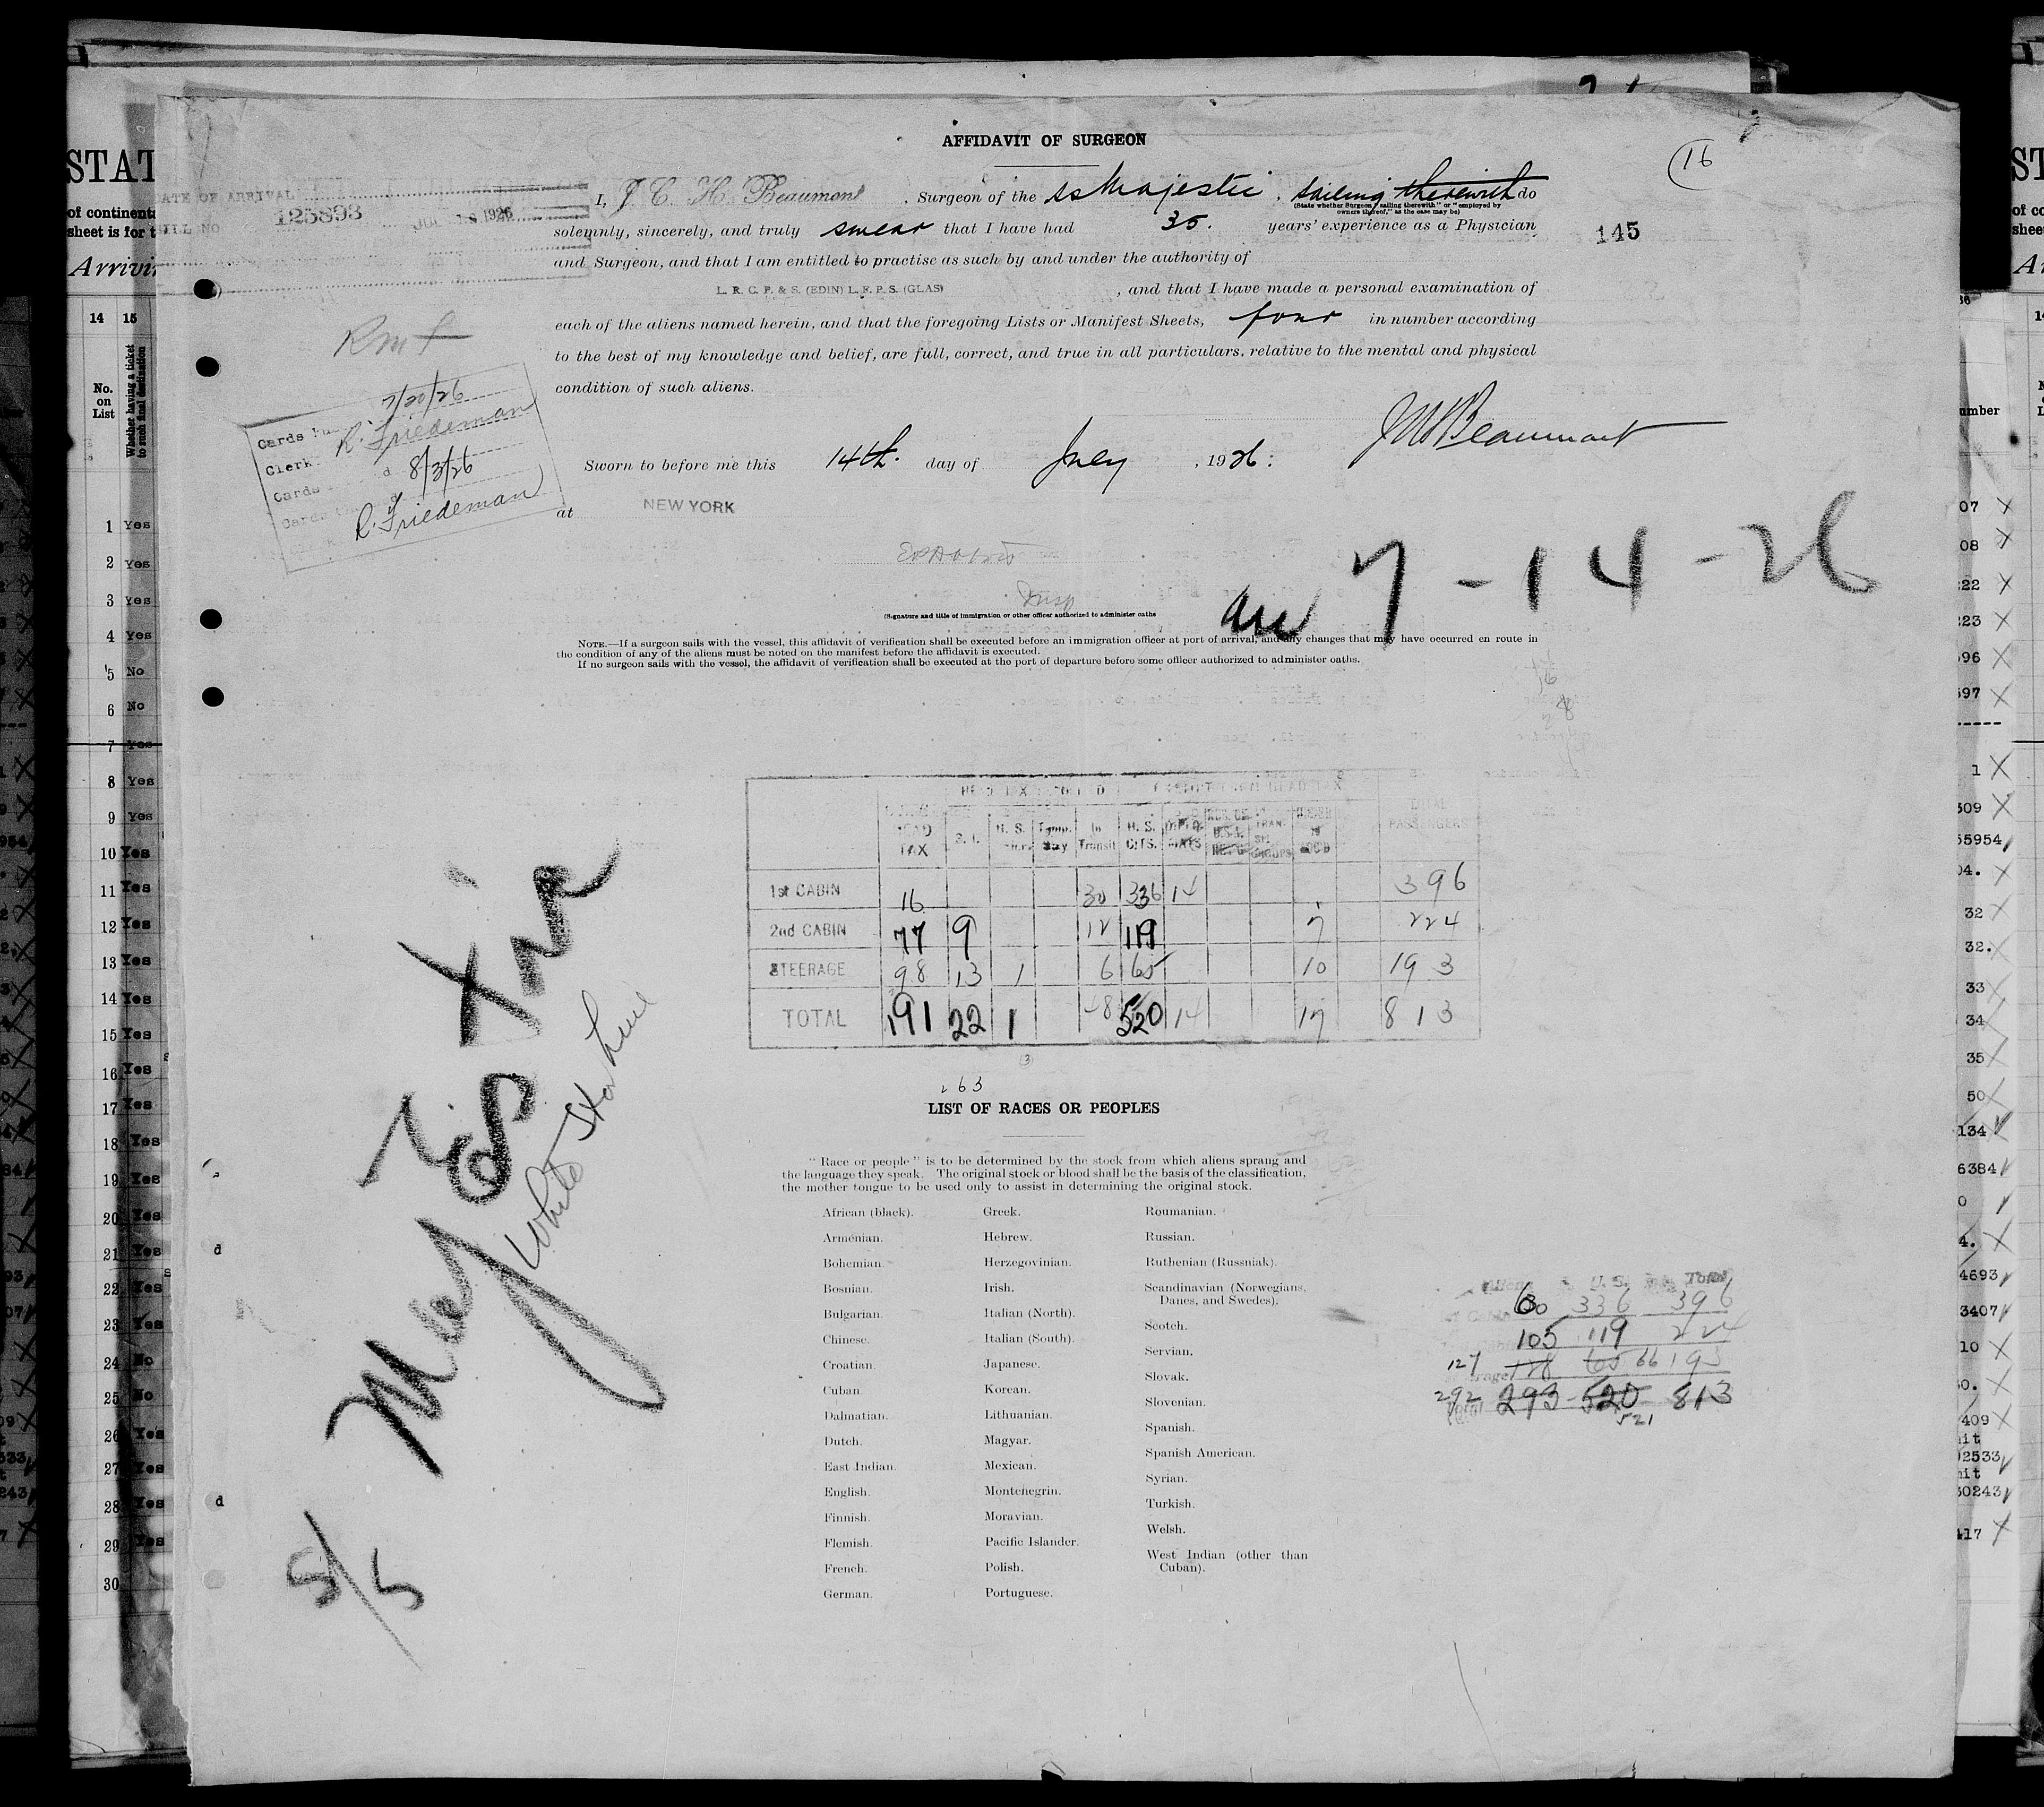 AFFIDAVIT OF SURGEON
16
145
STAT
of continent
sheet is for t
Arrivin
DATE OF ARRIVAL
BILL NO 125893 1926
I, J. C. H. Beaumont, Surgeon of the ss Majestic, sailing therewith do
(State whether Surgeon "sailing therewith" or "employed by
owners thereof," as the case may be)
solemnly, sincerely, and truly swear that I have had 35. years' experience as a Physician
and Surgeon, and that I am entitled to practise as such by and under the authority of
L. R. C. P. & S. (EDIN) L. F. P. S. (GLAS) , and that I have made a personal examination of
each of the aliens named herein, and that the foregoing Lists or Manifest Sheets, four in number according
to the best of my knowledge and belief, are full, correct, and true in all particulars, relative to the mental and physical
condition of such aliens.
JCHBeaumont
Sworn to before me this 14th. day of July, 1926:
at NEW YORK
Insp
(Signature and title of immigration or other officer authorized to administer oaths
7/20/26
Cards
Clerk R. Friedeman
Cards 8/3/26
Cards
R. Friedeman
arr 7-14-26
NOTE.—If a surgeon sails with the vessel, this affidavit of verification shall be executed before an immigration officer at port of arrival, and any changes that may have occurred en route in
the condition of any of the aliens must be noted on the manifest before the affidavit is executed.
If no surgeon sails with the vessel, the affidavit of verification shall be executed at the port of departure before some officer authorized to administer oaths.
HEAD TAX
HEAD TAX S. I. U. S. Temp. Stay In Transit U. S. CITS. TOTAL PASSENGERS
1st CABIN 16 30 336 14 396
2nd CABIN 77 9 12 119 7 224
STEERAGE 98 13 1 6 65 10 193
TOTAL 191 22 1 48 520 14 17 813
263
LIST OF RACES OR PEOPLES
"Race or people" is to be determined by the stock from which aliens sprang and
the language they speak. The original stock or blood shall be the basis of the classification,
the mother tongue to be used only to assist in determining the original stock.
African (black).
Armenian.
Bohemian.
Bosnian.
Bulgarian.
Chinese.
Croatian.
Cuban.
Dalmatian.
Dutch.
East Indian.
English.
Finnish.
Flemish.
French.
German.
Greek.
Hebrew.
Herzegovinian.
Irish.
Italian (North).
Italian (South).
Japanese.
Korean.
Lithuanian.
Magyar.
Mexican.
Montenegrin.
Moravian.
Pacific Islander.
Polish.
Portuguese.
Roumanian.
Russian.
Ruthenian (Russniak).
Scandinavian (Norwegians,
Danes, and Swedes).
Scotch.
Servian.
Slovak.
Slovenian.
Spanish.
Spanish American.
Syrian.
Turkish.
Welsh.
West Indian (other than
Cuban).
Alien U. S. Total
60 336 396
105 119 224
127 128 65 66 193
292 293 520 813
521
White Star Line
5/5
14 15
No.
on
List
Whether having a ticket
to such final destination
1 Yes
2 Yes
3 Yes
4 Yes
5 No
6 No
7 Yes
8 Yes
9 Yes
10 Yes
11 Yes
12 Yes
13 Yes
14 Yes
15 Yes
16 Yes
17 Yes
18 Yes
19 Yes
20 Yes
21 Yes
22 Yes
23 Yes
24 No
25 No
26 Yes
27 Yes
28 Yes
29 Yes
30